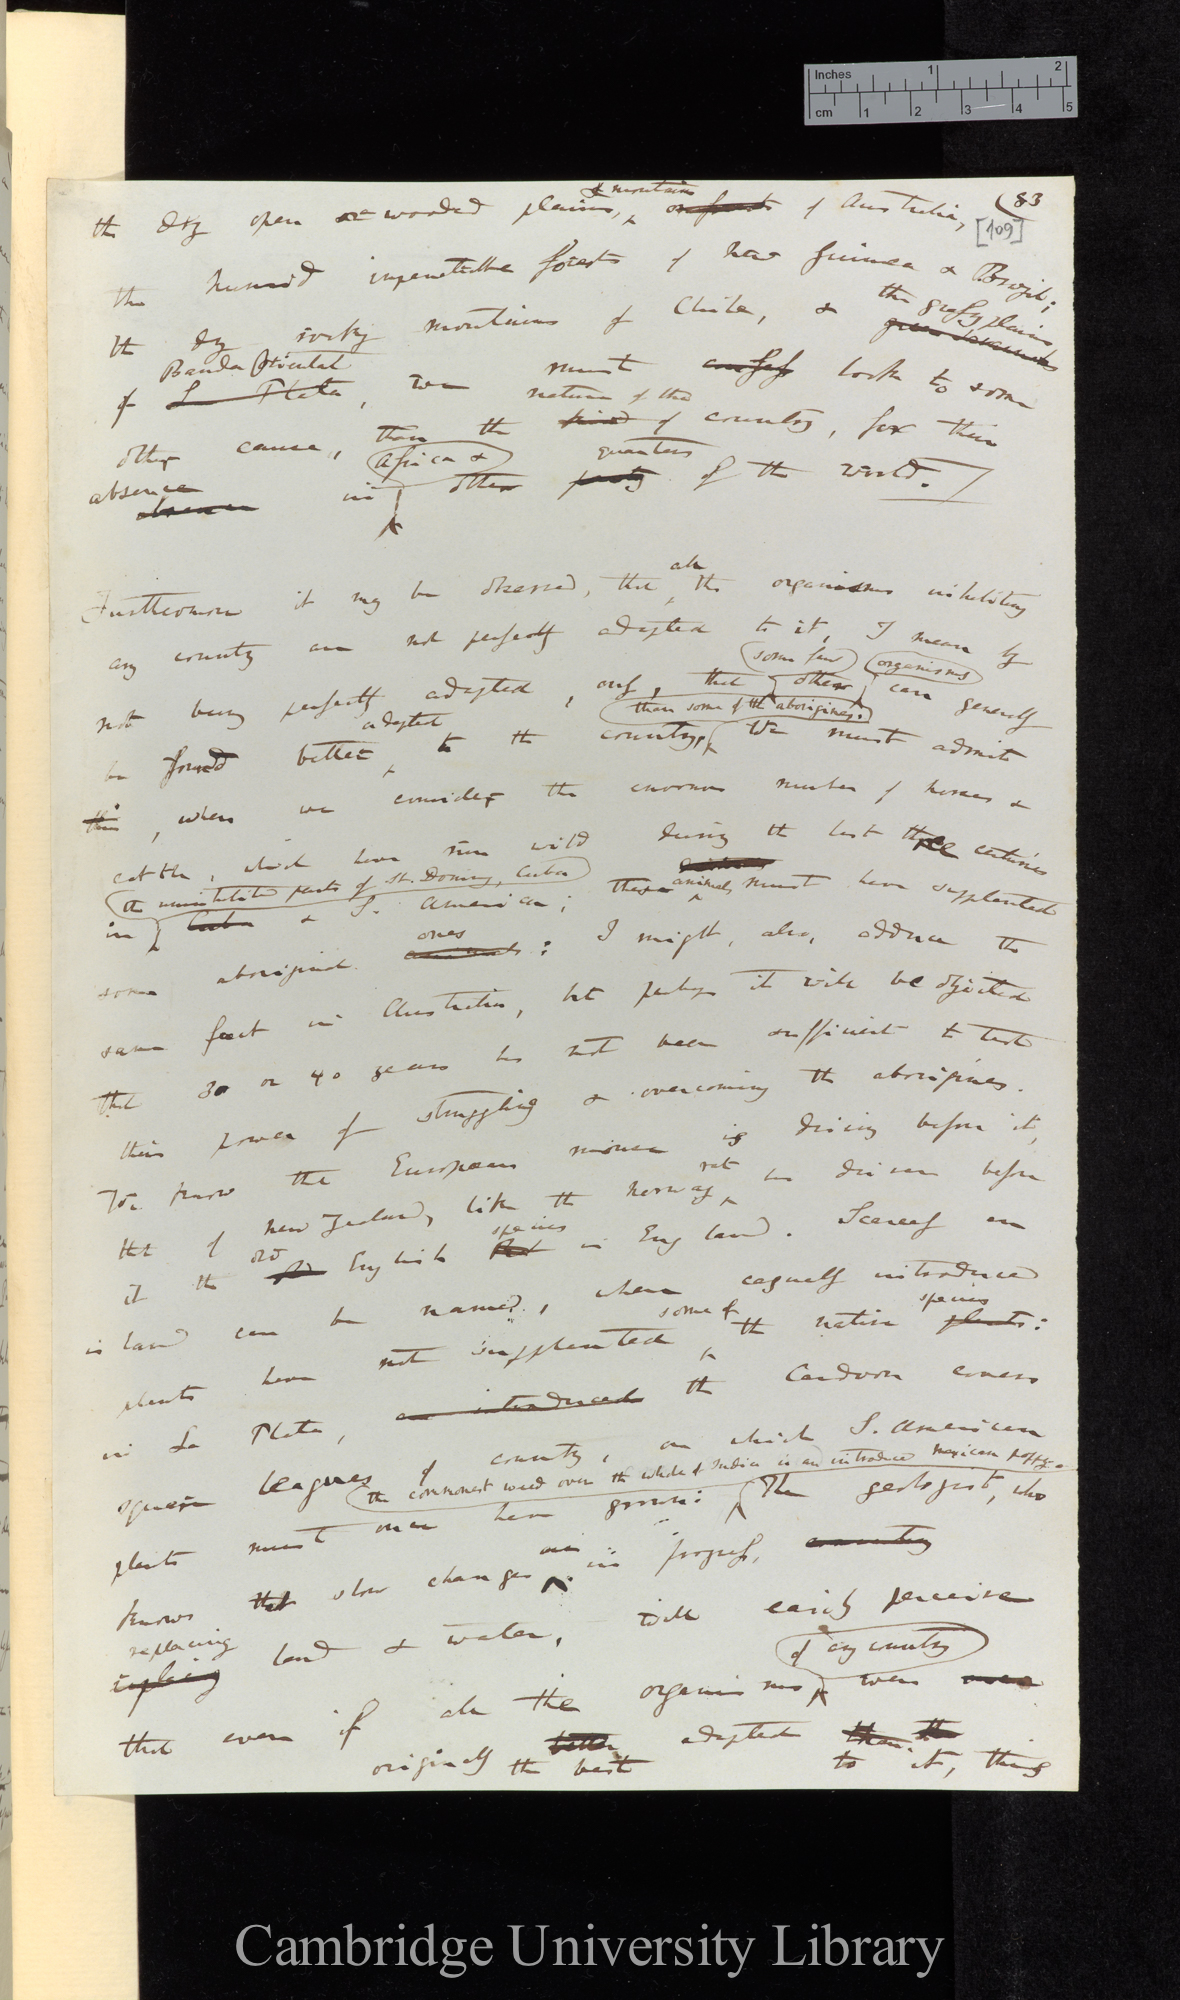 Inches 1 2
cm 1 2 3 4 5
(83
[109]
& mountains
the dry open or wooded plains, of Australia,
the humid impenetrable forests of New Guinea & Brazil;
the grassy plains
the dry rocky mountains of Chile, &
Banda Oriental
of La Plata, we must confess look to some
nature of the
other cause, than the kind of country, for their
Africa & quarters
absence in other parts of the world.
absence
all
Furthermore it may be observed, that the organisms inhabiting
any country are not perfectly adapted to it, I mean by
some few organisms
not being perfectly adapted, only, that others can generally
adapted than some of the aborigines.
be found better to the country, We must admit
this, when we consider the enormous number of horses &
cattle, which have run wild during the last three centuries
the uninhabited parts of St. Domingo, Cuba
in Cuba & S. America; these animals must have supplanted
ones
some aboriginal animals: I might, also, adduce the
same fact in Australia, but perhaps it will be objected
that 30 or 40 years has not been sufficient to test
their power of struggling & overcoming the aborigines.
We know the European mouse is driving before it,
rat
that of New Zealand, like the Norway has driven before
old species
it the old English Rat in England. Scarcely an
island can be named, where casually introduced
some of species
plants have not supplanted the native plants:
in La Plata, an introduced the Cardoon covers
square leagues of country, on which S. American
the commonest weed over the whole of India is an introduced Mexican poppy.
plants must once have grown: The geologist, who
are
knows that slow changes in progress, country
replacing
replacing land & water, will easily perceive
of any country
that even if all the organisms were
originally the best better adapted to it, this
Cambridge University Library